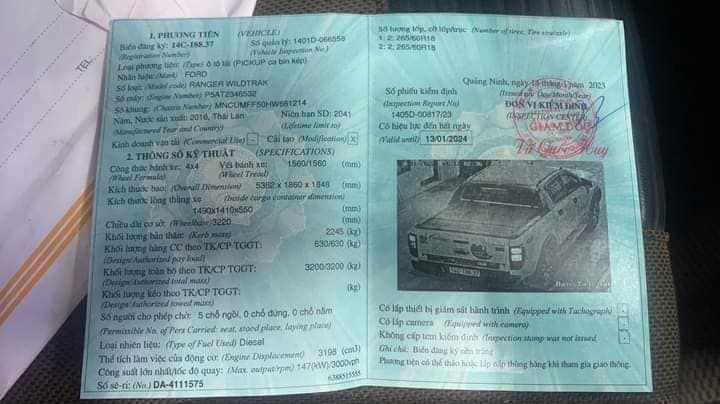 1. PHƯƠNG TIỆN (VEHICLE)
Biển đăng ký: 14C-188.37 Số quản lý: 1401D-066558
(Registration Number) (Vehicle Inspection No.)
Loại phương tiện: (Type) ô tô tải (PICKUP ca bin kép)
Nhãn hiệu: (Mark) FORD
Số loại: (Model code) RANGER WILDTRAK
Số máy: (Engine Number) P5AT2346532
Số khung: (Chassis Number) MNCUMFF50HW681214
Năm, Nước sản xuất: 2016, Thái Lan Niên hạn SD: 2041
(Manufactured Year and Country) (Lifetime limit to)
Kinh doanh vận tải (Commercial Use) - Cải tạo (Modification) x
2. THÔNG SỐ KỸ THUẬT (SPECIFICATIONS)
Công thức bánh xe: 4x4 Vết bánh xe: 1560/1560 (mm)
(Wheel Formula) (Wheel Tread)
Kích thước bao: (Overall Dimension) 5362 x 1860 x 1848 (mm)
Kích thước lòng thùng xe (Inside cargo container dimension)
1490x1410x550 (mm)
Chiều dài cơ sở: (Wheelbase) 3220 (mm)
Khối lượng bản thân: (Kerb mass) 2245 (kg)
Khối lượng hàng CC theo TK/CP TGGT: 630/630 (kg)
(Design/Authorized pay load)
Khối lượng toàn bộ theo TK/CP TGGT: 3200/3200 (kg)
(Design/Authorized total mass)
Khối lượng kéo theo TK/CP TGGT: (kg)
(Design/Authorized towed mass)
Số người cho phép chở: 5 chỗ ngồi, 0 chỗ đứng, 0 chỗ nằm
(Permissible No. of Pers Carried: seat, stood place, laying place)
Loại nhiên liệu: (Type of Fuel Used) Diesel
Thể tích làm việc của động cơ: (Engine Displacement) 3198 (cm3)
Công suất lớn nhất/tốc độ quay: (Max. output/rpm) 147(kW)/3000vph
Số sê-ri: (No.) DA-4111575 6388515555
Số lượng lốp, cỡ lốp/trục (Number of tires; Tire size/axle)
1: 2; 265/60R18
2: 2; 265/60R18
Quảng Ninh, ngày 14 tháng 1 năm 2023
(Issued on: Day/Month/Year)
Số phiếu kiểm định ĐƠN VỊ KIỂM ĐỊNH
(Inspection Report No) (INSPECTION CENTER)
1405D-00817/23 GIÁM ĐỐC
Có hiệu lực đến hết ngày
(Valid until) 13/01/2024 Vũ Quốc Huy
Có lắp thiết bị giám sát hành trình (Equipped with Tachograph) -
Có lắp camera (Equipped with camera) -
Không cấp tem kiểm định (Inspection stamp was not issued) -
Ghi chú: Biển đăng ký nền trắng
Phương tiện có thể tháo hoặc lắp nắp thùng hàng khi tham gia giao thông.
TEL